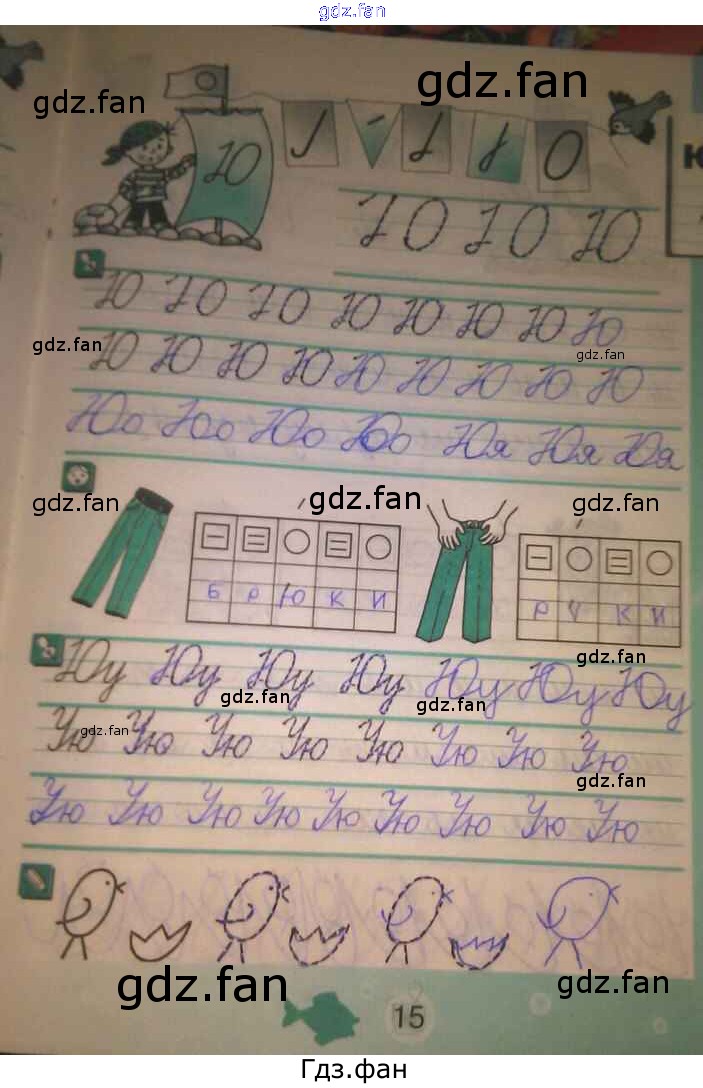 gdz.fan
gdz.fan
gdz.fan
Ю О
Ю Ю Ю
Ю Ю Ю Ю Ю Ю Ю Ю
gdz.fan
gdz.fan
Ю Ю Ю Ю Ю Ю Ю Ю Ю
Юо Юо Юо Юо Юя Юя Юя
gdz.fan
gdz.fan
gdz.fan
Б Р Ю К И
Р У К И
gdz.fan
Юу Юу Юу Юу Юу Юу Юу
gdz.fan
gdz.fan
gdz.fan
Ую Ую Ую Ую Ую Ую Ую Ую
gdz.fan
Ую Ую Ую Ую Ую Ую Ую Ую Ую
gdz.fan
gdz.fan
15
Гдз.фан